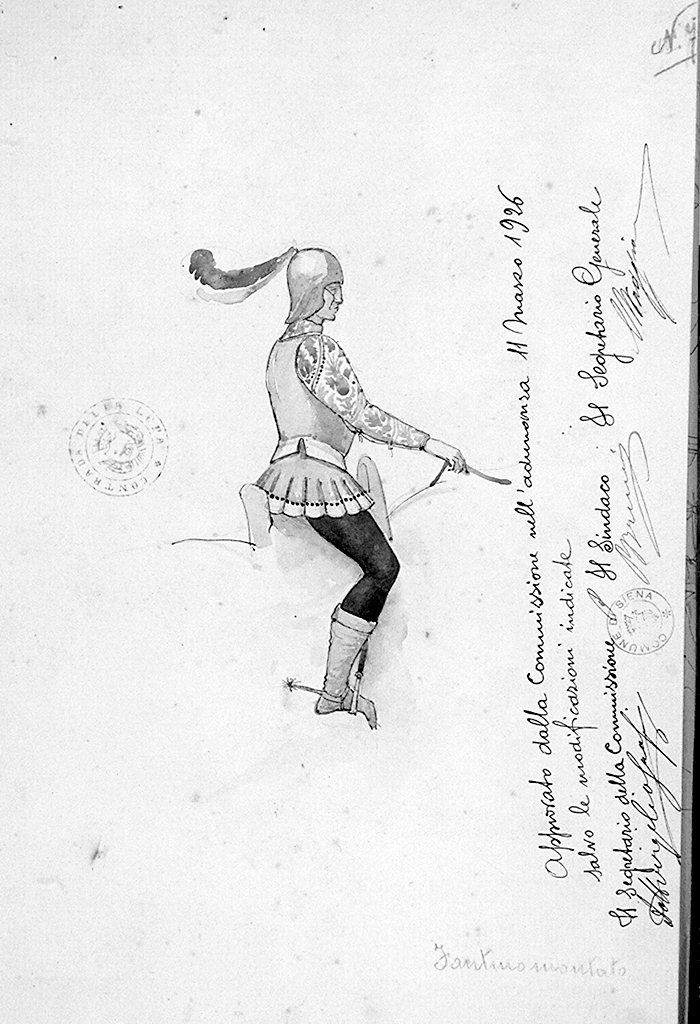 Approvato dalla Commissione nell'adunanza 11 Marzo 1926
salvo le modificazioni indicate
Il Segretario della Commissione Il Sindaco Il Segretario Generale
COMUNE DI SIENA
CONTRADA DELLA LUPA
Fantino montato